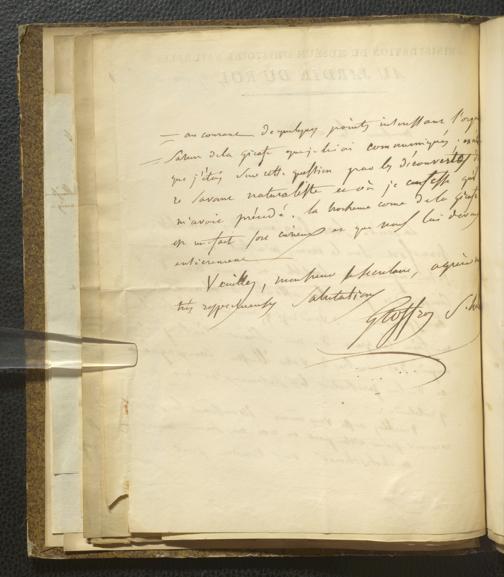 = au courant de quelques points intéressant l'orga
= sation de la Girafe que je lui ai communiqués :
que j'étois sur cette question par les découvertes
ce savant naturaliste et où je confesse qu'il
m'avoit précédé. la troisieme corne de la Girafe
est un fait fort curieux et que nous lui devons
entierement
Veuillez, monsieur le secretaire, agréer
très respectueuses Salutations
Geoffroy St. h